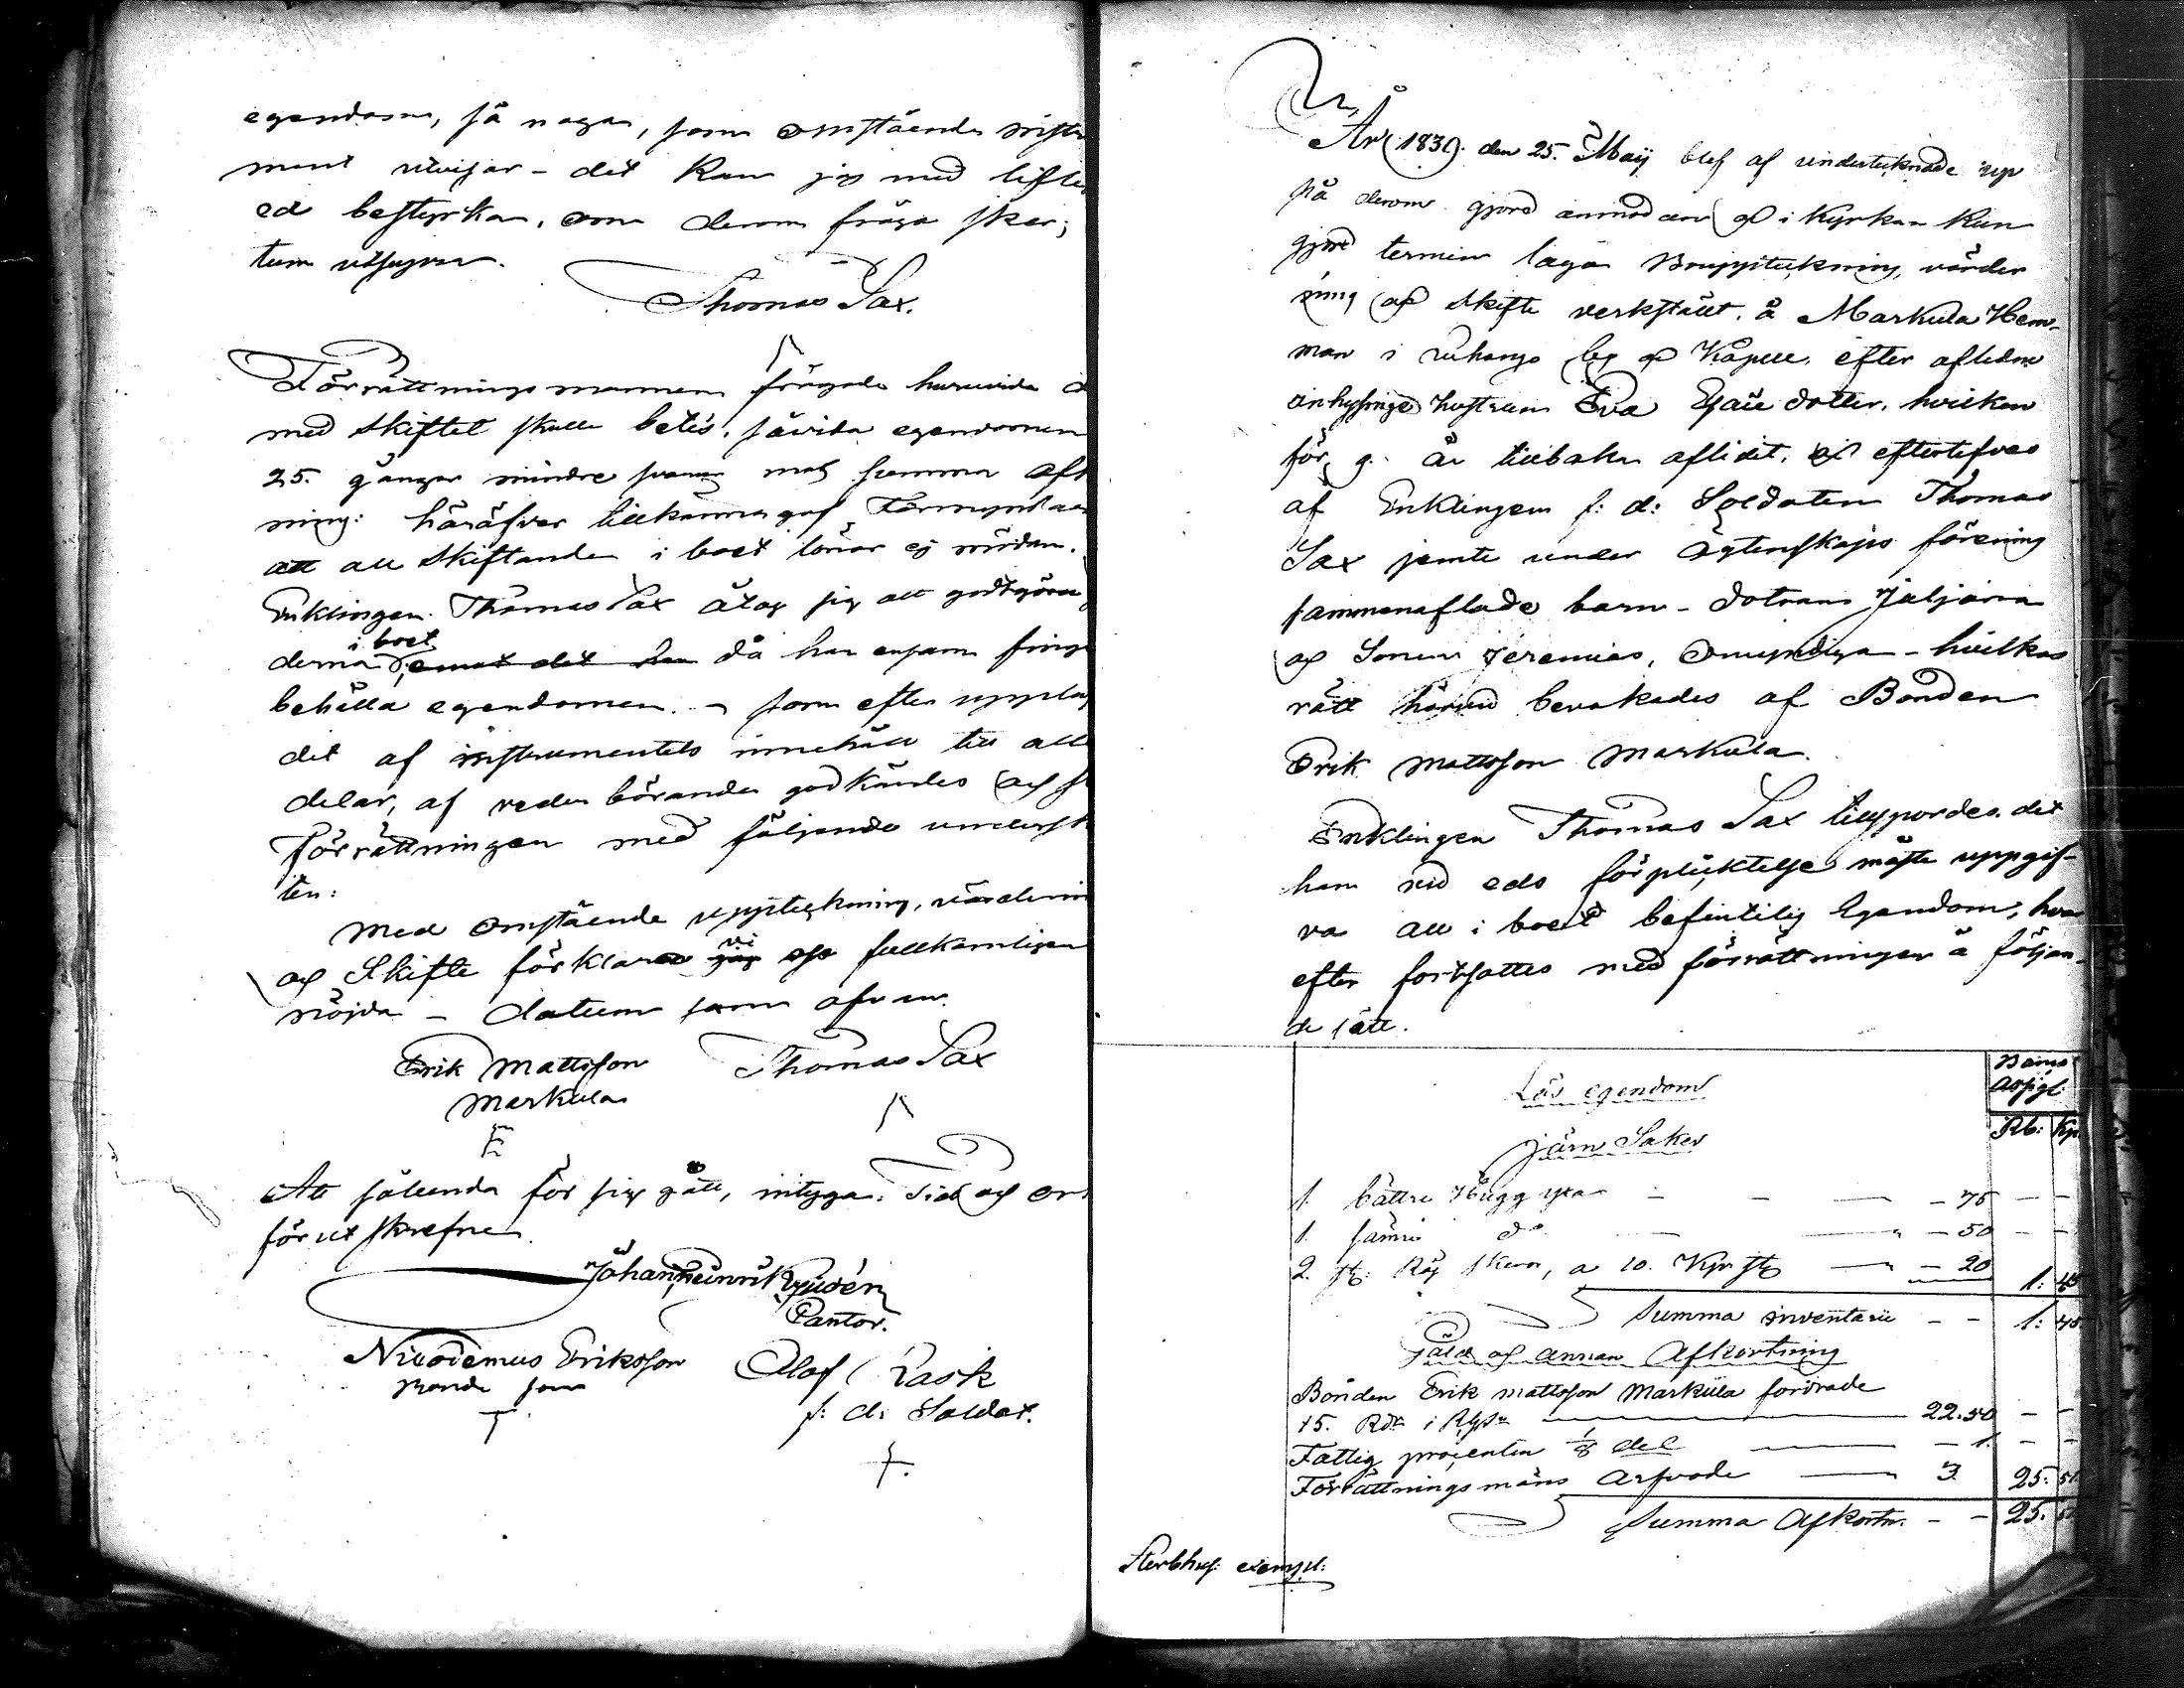 egendom, så nogan, som omstående instru
ment utvisar - det kan jag med liflig
ed bestyrka, om derom fråga sker;
tum utsupra.
Thomas Sax.
Förrättningsmannen frågade huruvida d
med skiftet skulle beteś, såvida egendomen
25. gångar mindre svarar mot summa afk
ning: häröfver tillkännagaf Förmyndaren
att all skiftande i boet lönar ej mödan.
Enklingen Thomas Sax åtog sig att godtgöra
i boet
derna emot det han då han ensam finge
behålla egendomen - som efter uppläs
det af instrumentets innehåll till alla
delar, af vederbörande godkändes och s
Förrättningen med följande underskr
ten:
Med omstående uppteckning, värdering
vi
och Skifte förklarar jag oss fullkomligen
nöjda - datum som ofvan.
Erik Mattsson Thomas Sax
Markula
E
Att sålunda för sig gått, intyga. Tid och ort
förut skrefne
Johan Heinrik
Cantor.
Nicodemus Eriksson Olaf Rask
Bonde son f: d: Soldat.
År 1831. den 25. Maij blef af undertecknade up
på derom gjord anmodan och i Kyrkan kun
gjord termin laga Bouppteckning, värder
ning och skifte verkstält, å Markula Hem-
man i Luhango by och Kapell, efter aflidne
inhysinge hustrun Eva Esaiædotter, hvilken
för g. år tillbaka aflidit, och efterlefves
af Enklingen f: d: Soldaten Thomas
Sax jemte under ägtenskaps förening
sammanaflade barn - dotran Juljana
och Sonen Jeremias, Omyndiga - hvilkas
rätt härvid bevakades af Bonden
Erik Mattsson Markula.
Enklingen Thomas Sax tillspordes, det
han vid eds förpliktelse måste uppgif-
va all i boet befintelig Egendom, hvar
efter fortsattes med förrättningen å följan-
de sätt.
Lös egendom
Banco
Assigt:
Järn Saker
Rb: Kp.
1. bättre Hugg yxa - - - 75 - -
1. sämre do - - 50 - -
2. st: Råg skäror, a 10. Kp. st - 20 1: 45
Summa inventarii - - 1: 45
Gäld och annan Afkortning
Bonden Erik Mattsson Markula fordrade
15. Rdr i Rgs 22.50 - -
Fattig procenten 1/8 del - 1. - -
Förrättningsmäns Arfvode 3 25. 51.
Summa Afkortn. - - 25. 51
Sterbhus: exempl: